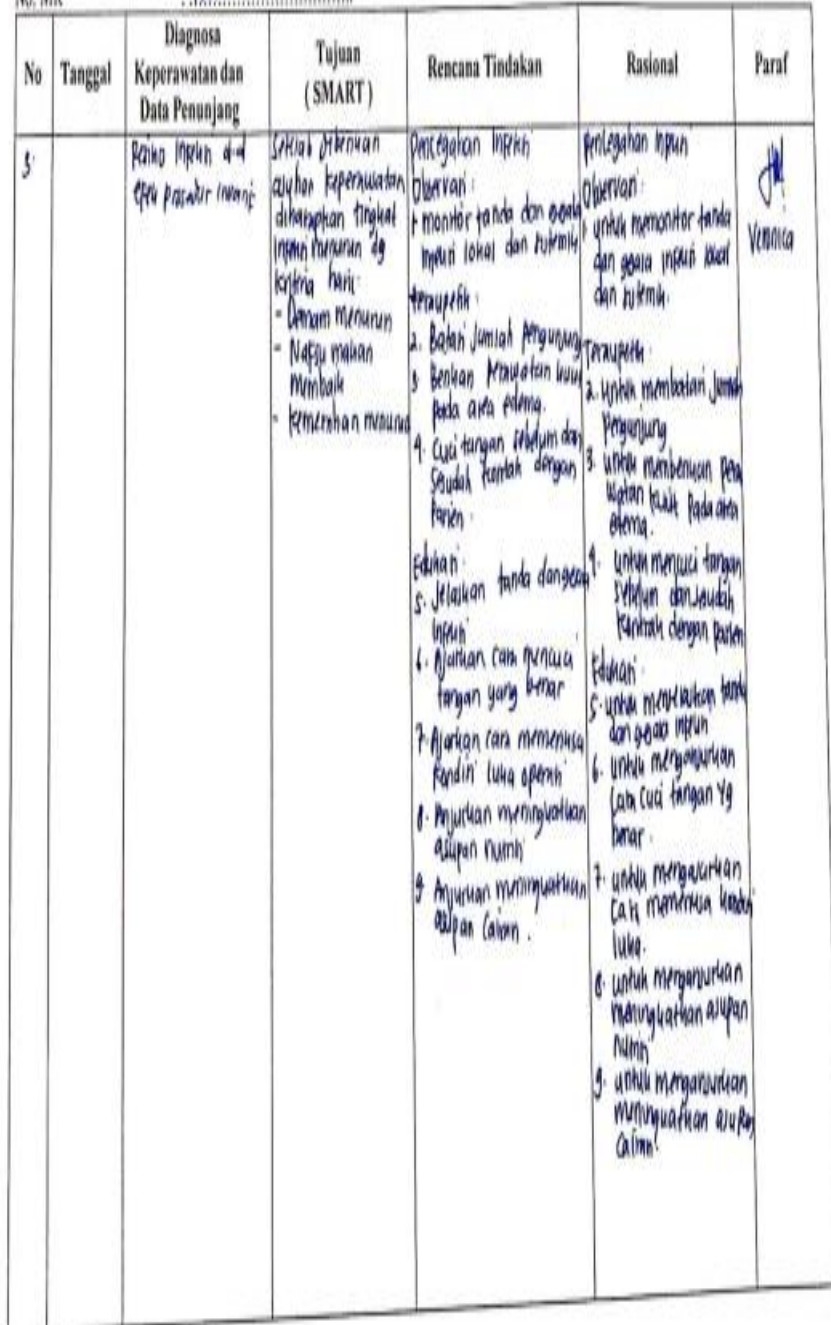 No
Tanggal
Diagnosa
Keperawatan dan
Data Penunjang
Tujuan
( SMART )
Rencana Tindakan
Rasional
Paraf
3.
Resiko Infeksi d.d
efek prosedur invasif
Setelah diberikan
asuhan keperawatan
diharapkan tingkat
infeksi menurun dg
kriteria hasil:
- Demam menurun
- Nafsu makan
membaik
- Kemerahan menurun
Pencegahan Infeksi
Observasi:
1 monitor tanda dan gejala
infeksi lokal dan sistemik
teraupetik:
2. Batasi jumlah pengunjung
3 Berikan perawatan kulit
pada area edema.
4. Cuci tangan sebelum dan
sesudah kontak dengan
Pasien.
Edukasi:
5. Jelaskan tanda dan gejala
infeksi
6. Ajarkan cara mencuci
tangan yang benar
7. Ajarkan cara memeriksa
kondisi luka operasi
8. Anjurkan meningkatkan
asupan nutrisi
9 Anjurkan meningkatkan
asupan cairan.
Pencegahan Infeksi
Observasi:
1 untuk memonitor tanda
dan gejala infeksi lokal
dan sistemik.
Teraupetik:
2. untuk membatasi jumlah
Pengunjung
3. untuk memberikan pera
watan kulit pada area
edema.
4. untuk mencuci tangan
sebelum dan sesudah
kontak dengan pasien
Edukasi:
5. untuk menjelaskan tanda
dan gejala infeksi
6. untuk mengajarkan
cara cuci tangan yg
benar.
7. untuk mengajarkan
cara memeriksa kondisi
luka.
8. untuk menganjurkan
meningkatkan asupan
nutrisi
9. untuk menganjurkan
meningkatkan asupan
cairan.
Veronica